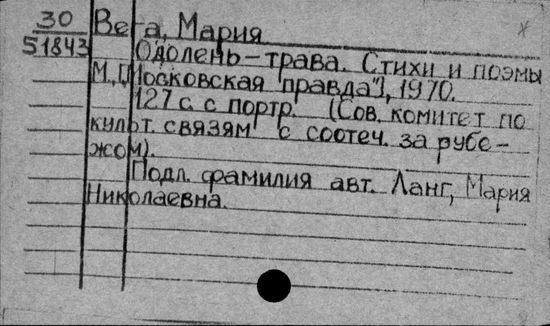 30 Вега, Мария
51843 Одолень-трава. Стихи и поэмы
М., ["Московская правда"], 1970.
127 с. с портр. (Сов. комитет по
культ. связям с соотеч. за рубе-
жом).
Подл. фамилия авт. Ланг, Мария
Николаевна.